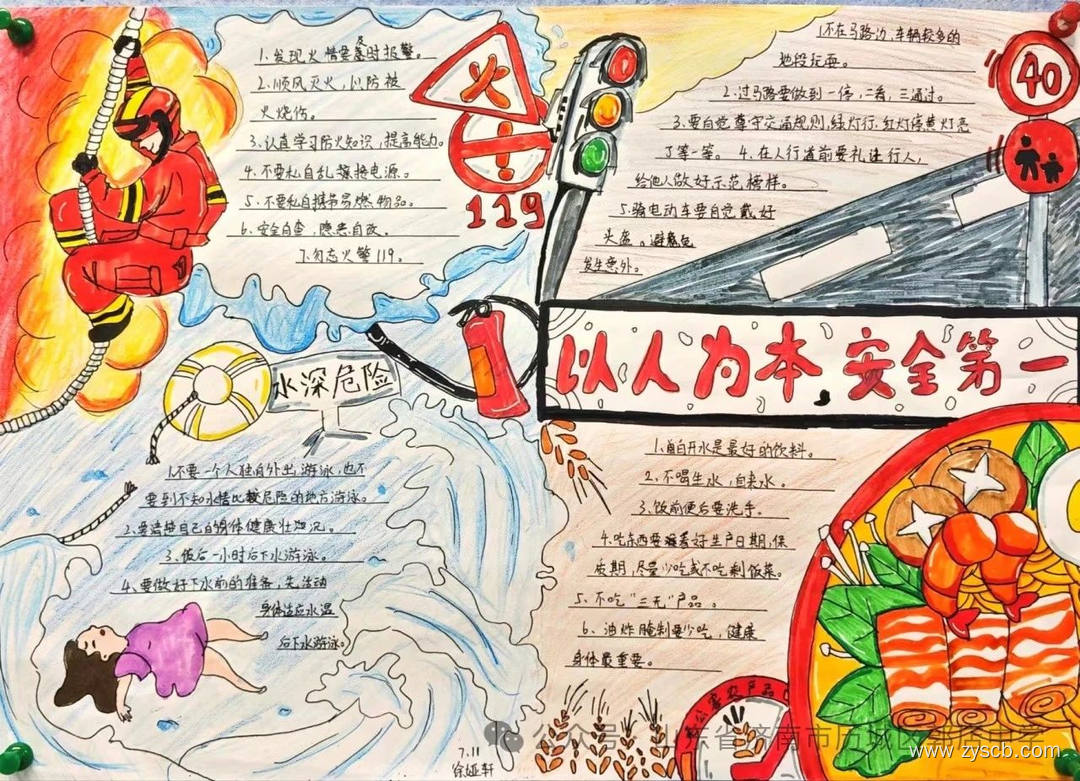 1.发现火情要及时报警。
2.顺风灭火,以防被
火烧伤。
3.认真学习防火知识,提高能力。
4.不要私自乱接电源。
5.不要私自携带易燃物品。
6.安全自查,隐患自改。
7.勿忘火警119。
火
119
1.不在马路边,车辆较多的
地段玩耍。
2.过马路要做到一停,二看,三通过。
3.要自觉遵守交通规则,绿灯行,红灯停黄灯亮
了等一等。 4.在人行道前要礼让行人,
给他人做好示范榜样。
5.骑电动车要自觉戴好
头盔。避免
发生意外。
40
以人为本,安全第一
水深危险
1.不要一个人独自外出游泳,也不
要到不知水情比较危险的地方游泳。
2.要清楚自己的身体健康状况。
3.饭后一小时后下水游泳。
4.要做好下水前的准备,先活动
身体适应水温
后下水游泳。
1.白开水是最好的饮料。
2.不喝生水,自来水。
3.饭前便后要洗手。
4.吃东西要看好生产日期,保
质期,尽量少吃或不吃剩饭菜。
5.不吃“三无”产品。
6.油炸腌制要少吃,健康
身体最重要。
农产品
7.11
公众号
山东省济南市历城
www.zyscb.com